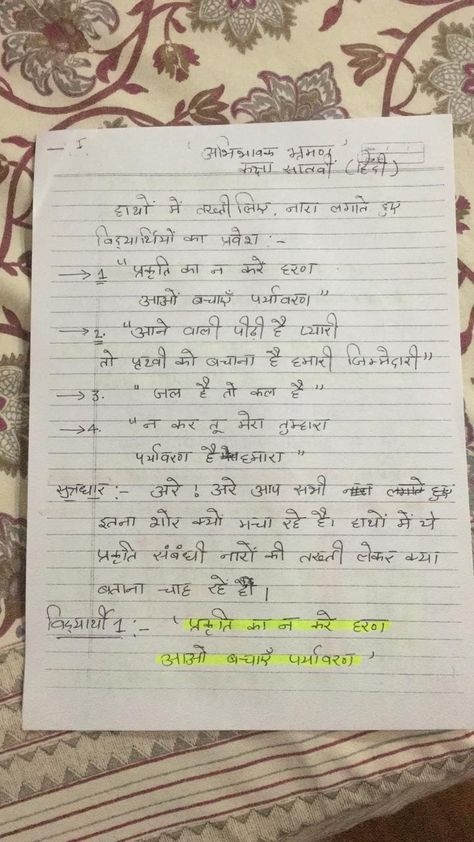 — I
' अभिभावक भ्रमण '
कक्षा सातवीं (हिंदी)
हाथों में तख्ती लिए, नारा लगाते हुए
विद्यार्थियों का प्रवेश :-
→ 1 " प्रकृति का न करें हरण
आओं बचाएँ पर्यावरण "
→ 2. " आने वाली पीढ़ी है प्यारी
तो पृथ्वी को बचाना है हमारी जिम्मेदारी "
→ 3. " जल है तो कल है "
→ 4. " न कर तू मेरा तुम्हारा
पर्यावरण है हमारा "
सूत्रधार :- अरे ! अरे आप सभी लगाते हुए
इतना शोर क्यों मचा रहे है। हाथों में ये
प्रकृति संबंधी नारों की तख्ती लेकर क्या
बताना चाह रहें हो।
विद्यार्थी 1 :- ' प्रकृति का न करे हरण
आओ बचाएँ पर्यावरण '